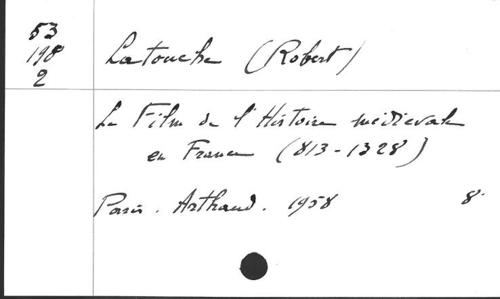 53
198
2
Latouche (Robert)
Le Film de l'Histoire médiévale
en France (813-1328)
Paris. Arthaud. 1958 8°